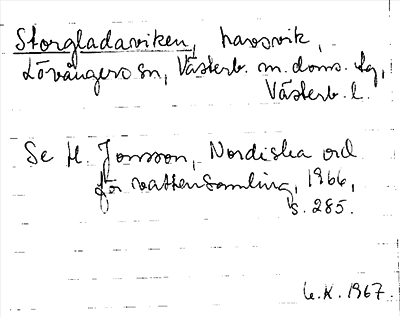 Storgladaviken, havsvik,
Lövångers sn, Västerb. m. doms. tg,
Västerb. l.
Se H. Jonsson, Nordiska ord
för vattensamling, 1966,
s. 285.
G.K. 1967.